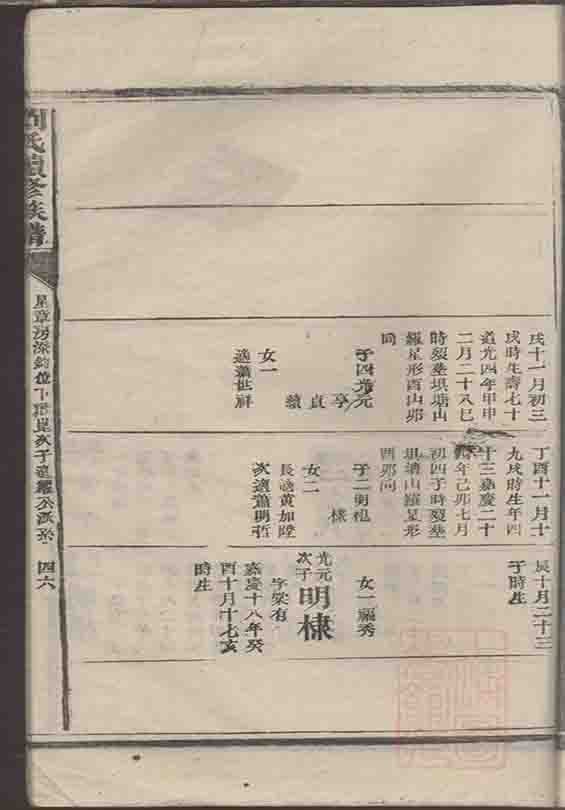 氏續修族譜
四六
戌十一月初三
戌時生壽七十
道光四年甲申
二月二十八巳
時歿塟垻塘山
羅星形酉山卯
向
子四光元
亨
貞
續
女一
適蕭世祥
丁酉十一月十
九戌時生年四
十三嘉慶二十
年己卯七月
初四子時歿塟
垻塘山羅星形
酉卯向
子二明
棣
女二
長適黃加陞
次適蕭明哲
辰十月二十三
子時生
女一福秀
光元
次子
明棣
字榮有
嘉慶十八年癸
酉十月十七亥
時生